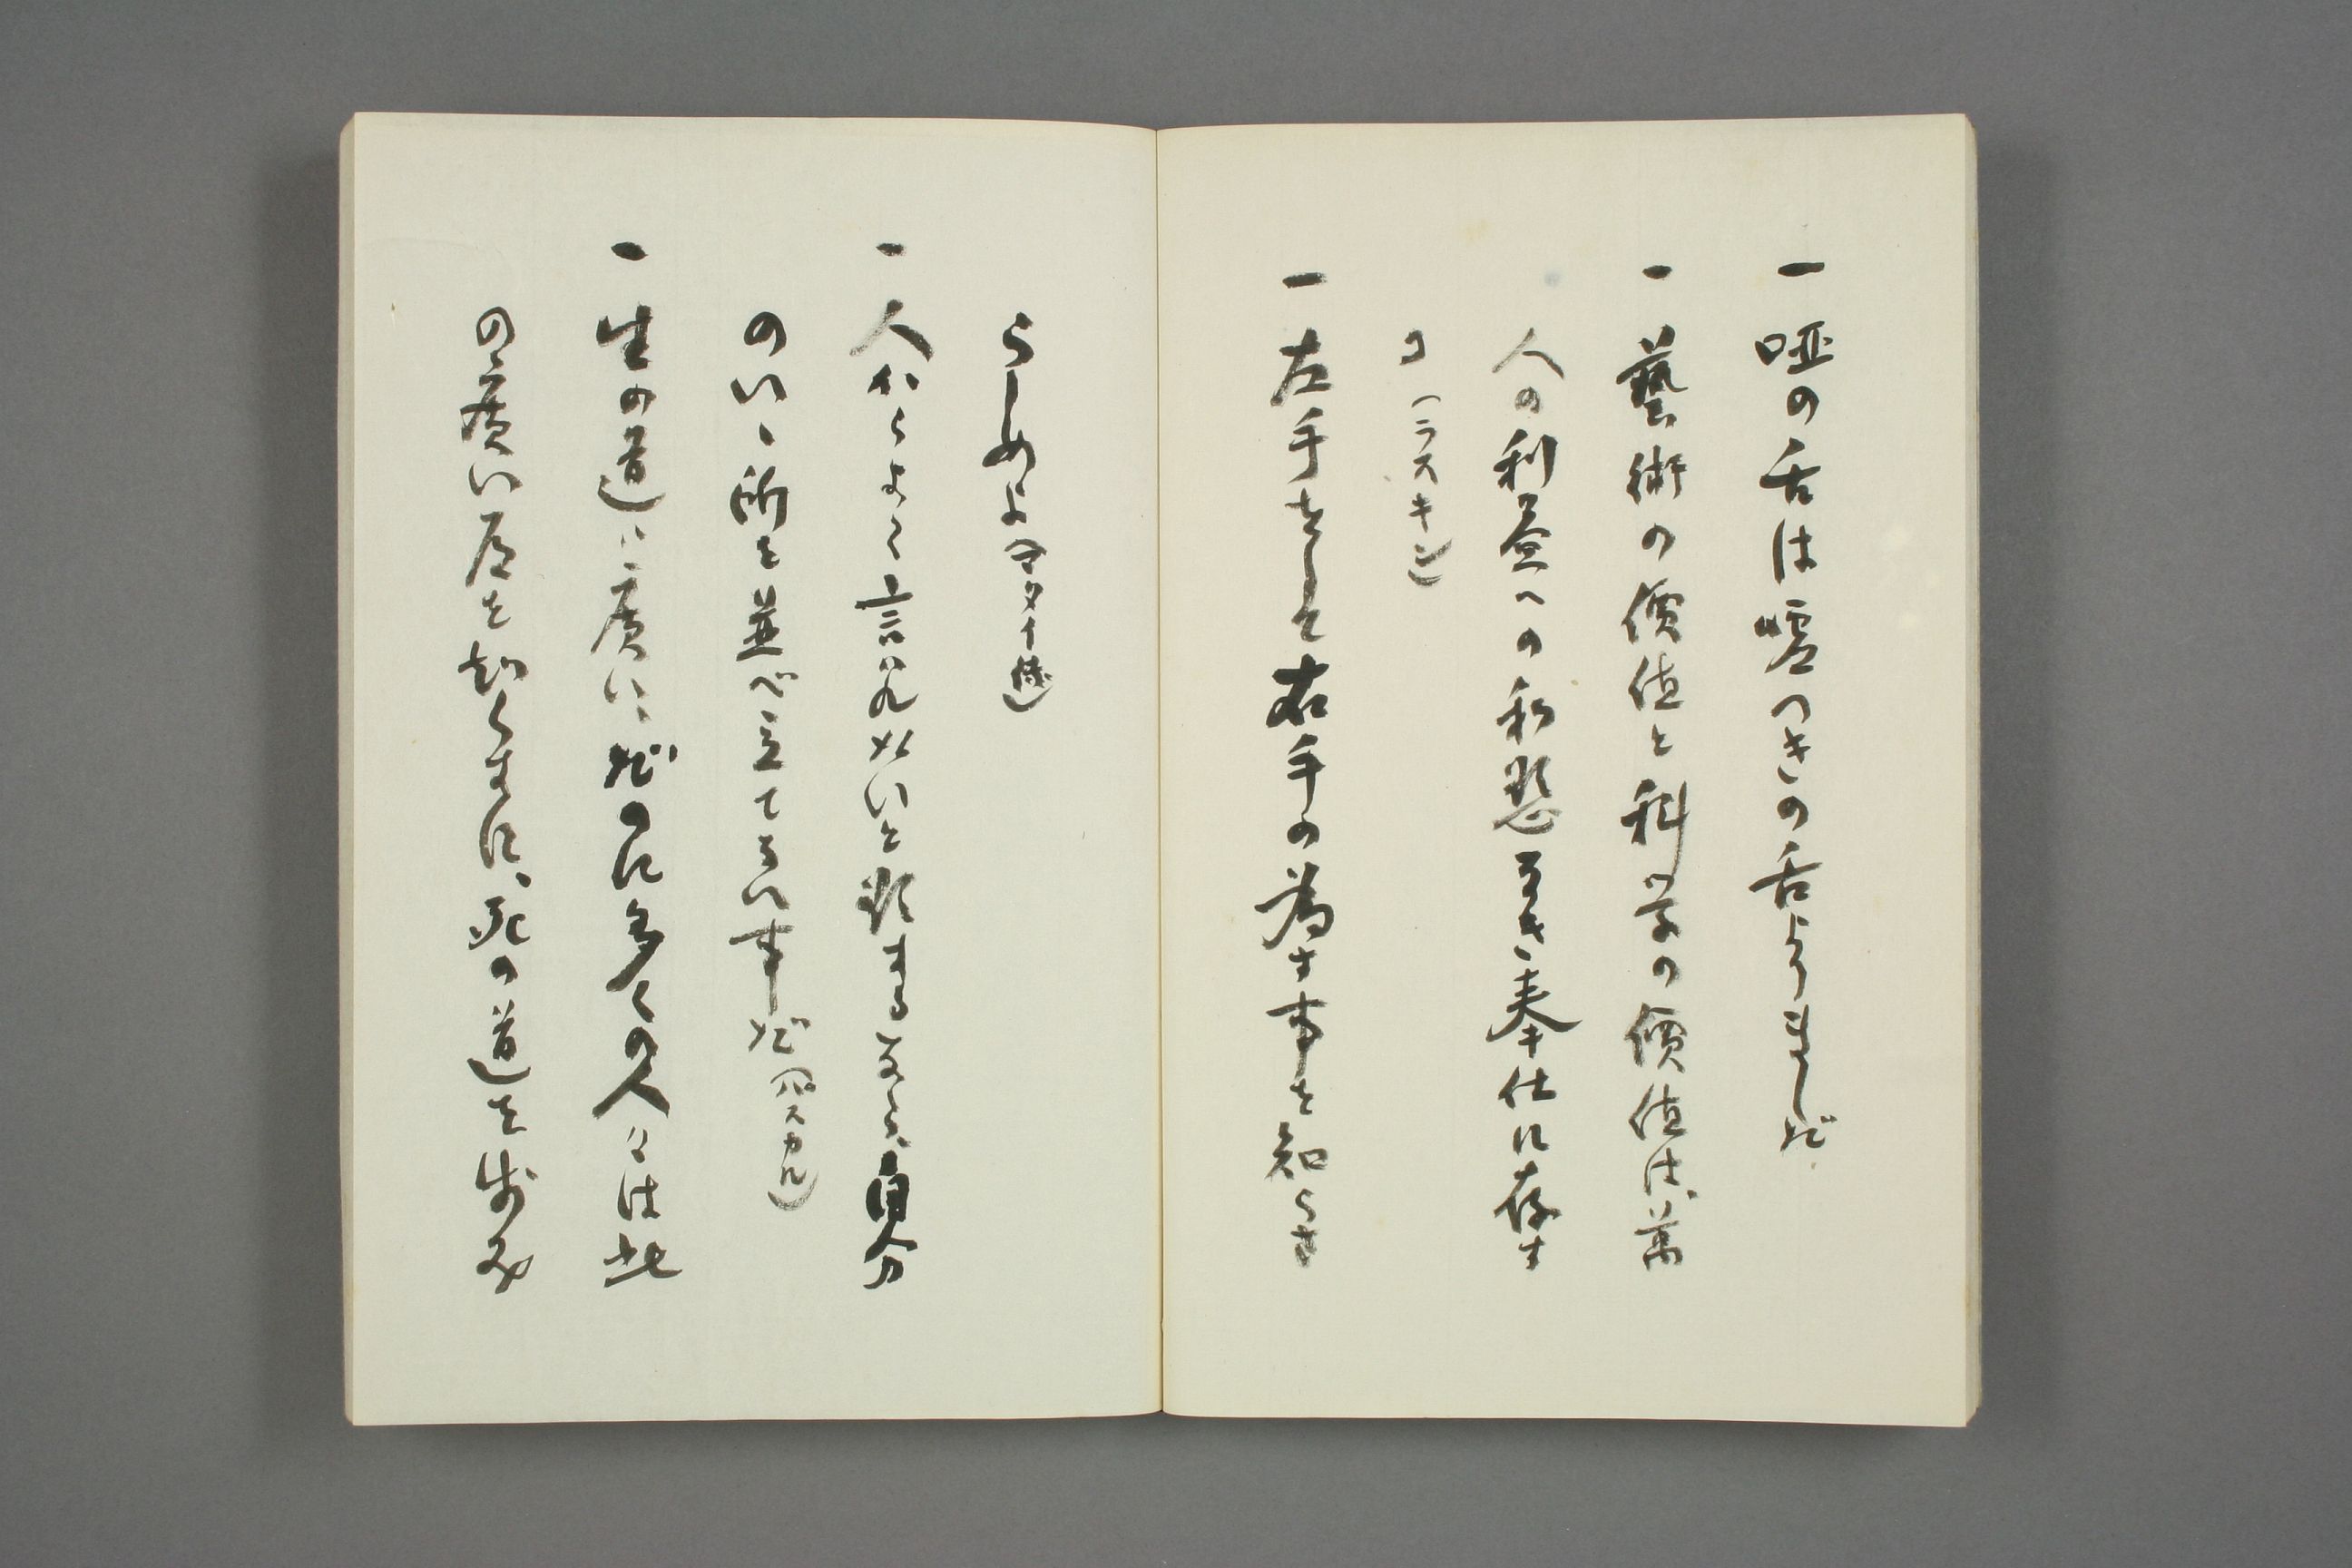 一 啞の舌は嘘つきの舌よりましだ
一 藝術の價値と科学の價値は、萬
人の利益への私慾なき奉仕に存す
る（ラスキン）
一 左手をして右手の為す事を知らさ
らしめよ（マタイ傳）
一 人からよく言われたいと欲するなら、自分
のいゝ所を並べ立てない事だ（パスカル）
一 生の道は廣い、だのに多くの人々は此
の廣い道を知らずに、死の道を歩み